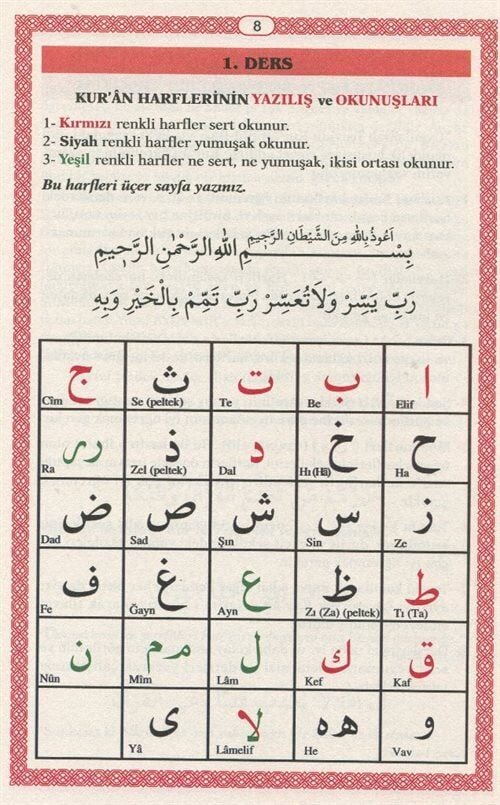 8
1. DERS
KUR'ÂN HARFLERİNİN YAZILIŞ ve OKUNUŞLARI
1- Kırmızı renkli harfler sert okunur.
2- Siyah renkli harfler yumuşak okunur.
3- Yeşil renkli harfler ne sert, ne yumuşak, ikisi ortası okunur.
Bu harfleri üçer sayfa yazınız.
اَعُوذُ بِاللّٰهِ مِنَ الشَّيْطَانِ الرَّجِيمِ
بِسْمِ اللّٰهِ الرَّحْمٰنِ الرَّحِيمِ
رَبِّ يَسِّرْ وَلَا تُعَسِّرْ رَبِّ تَمِّمْ بِالْخَيْرِ وَبِهِ
ا ب ت ث ج
Elif Be Te Se (peltek) Cîm
ح خ د ذ ر ر
Ha Hı (Hâ) Dal Zel (peltek) Ra
ز س ش ص ض
Ze Sin Şın Sad Dad
ط ظ ع غ ف
Tı (Ta) Zı (Za) (peltek) Ayn Ğayn Fe
ق ك ل م م ن
Kaf Kef Lâm Mîm Nûn
و ه ه لا ى
Vav He Lâmelif Yâ